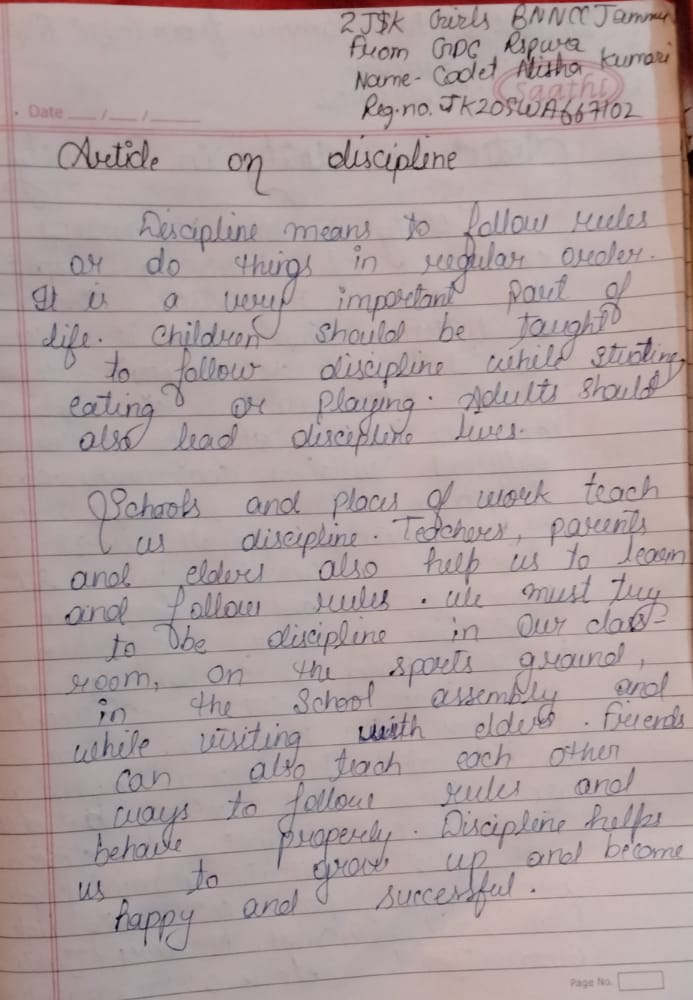 2 J&K Girls BNNCC Jammu
From GDC Rspura
Name- Cadet Alisha Kumari
Saathi
Reg.no. JK20SWA667102
Date __/__/____
Article on discipline
Discipline means to follow rules
or do things in regular order.
It is a very important part of
life. Children should be taught
to follow discipline while studing,
eating or playing. Adults should
also lead discipline lives.
Schools and places of work teach
us discipline. Teachers, parents
and elders also help us to learn
and follow rules. We must try
to be discipline in our class-
room, on the sports ground,
in the School assembly and
while visiting with elders. Friends
can also teach each other
ways to follow rules and
behave properly. Discipline helps
us to grow up and become
happy and successful.
Page No.